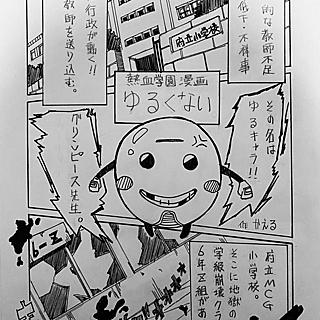 的な教師不足
低下・不祥事
行政が動く!!
教師を送り込む。
府立小学校
熱血学園漫画
ゆるくない
その名は
ゆるキャラ!!
グリンピース先生。
作 かえる
府立MCG
小学校。
そこに地獄の
学級崩壊クラ
6年Z組があ
6-Z